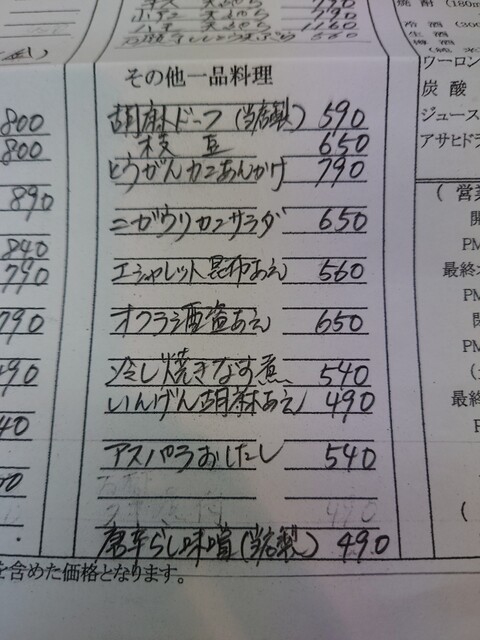 790
790
1260
560
その他一品料理
胡麻ドーフ(当店製) 590
枝豆 650
とうがんカニあんかけ 790
ニガウリカニサラダ 650
エシャレット昆布あえ 560
オクラ酒盗あえ 650
冷し焼きなす煮 540
いんげん胡麻あえ 490
アスパラおしたし 540
490
唐辛らし味噌(当店製) 490
を含めた価格となります。
800
800
890
840
790
790
490
40
焼酎(180m
冷酒(300
生酒
ウーロン
炭酸
ジュース
アサヒドラ
(営業
開
PM
最終オ
PM
閉
PM
最終